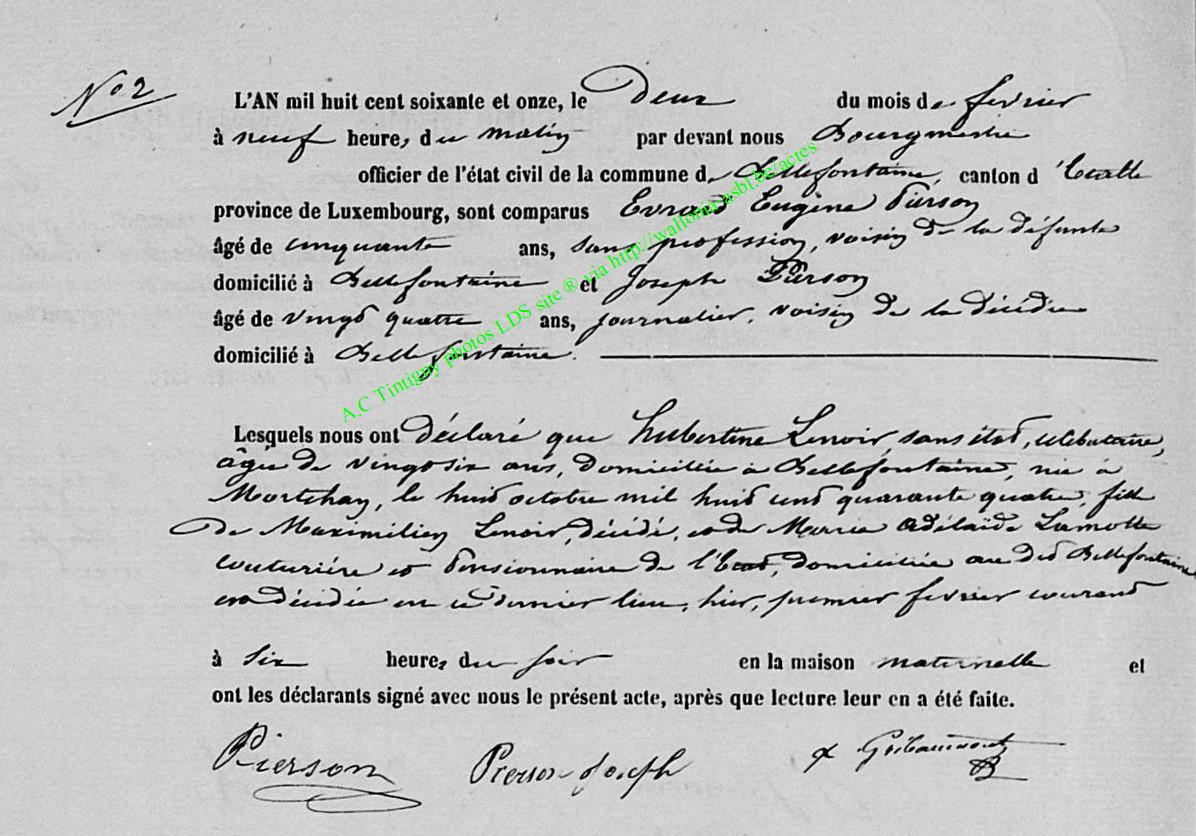 No 2
L'AN mil huit cent soixante et onze, le Deux du mois de février
à neuf heures du matin par devant nous Bourgmestre
officier de l'état civil de la commune de Bellefontaine, canton d'Etalle
province de Luxembourg, sont comparus Evrard Eugène Pierson
âgé de cinquante ans, sans profession, voisin de la défunte
domicilié à Bellefontaine et Joseph Pierson
âgé de vingt quatre ans, journalier, voisin de la décédée
domicilié à Bellefontaine.
Lesquels nous ont déclaré que Hubertine Lenoir, sans état, célibataire,
âgée de vingt six ans, domiciliée à Bellefontaine, née à
Mortehan, le huit octobre mil huit cent quarante quatre, fille
de Maximilien Lenoir, décédé, et de Marie Adélaïde Lamotte
couturière et pensionnaire de l'Etat, domiciliée au dit Bellefontaine
est décédée en ce dernier lieu, hier, premier février courant
à six heures du soir en la maison maternelle et
ont les déclarants signé avec nous le présent acte, après que lecture leur en a été faite.
Pierson Pierson Joseph
A.C Tintigny photos LDS site ® via http://wallonia.asbl.be/actes